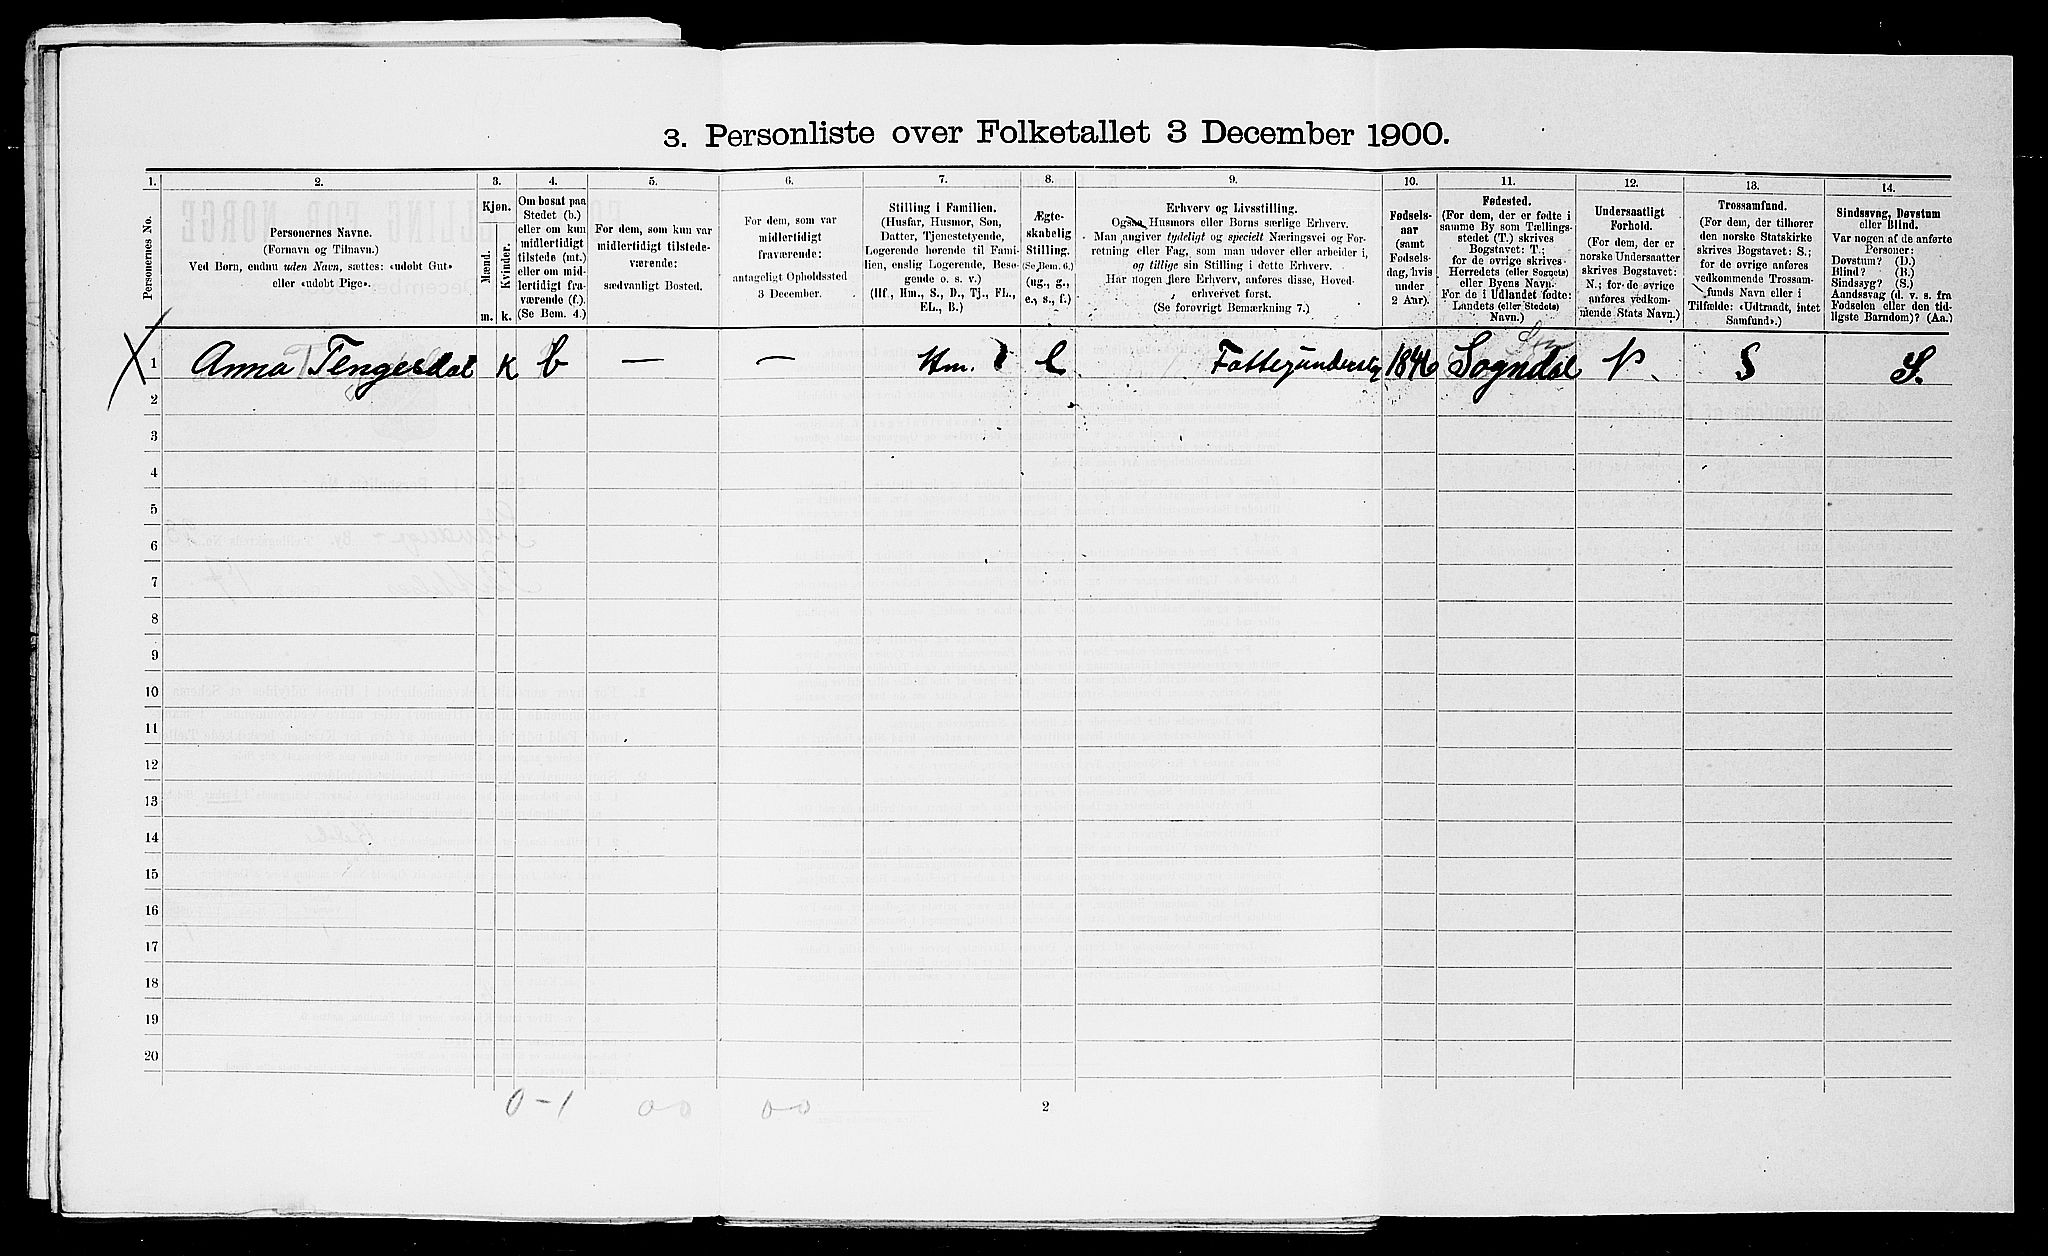 3. Personliste over Folketallet 3 December 1900.
1. 2. 3. 4. 5. 6. 7. 8. 9. 10. 11. 12. 13. 14.
Personernes No.
Personernes Navne.
(Fornavn og Tilnavn.)
Ved Børn, endnu uden Navn, sættes: «udøbt Gut»
eller «udøbt Pige».
Kjøn.
Mænd.
Kvinder.
m. k.
Om bosat paa
Stedet (b.)
eller om kun
midlertidigt
tilstede (mt.)
eller om mid-
lertidigt fra-
værende (f.).
(Se Bem. 4.)
For dem, som kun var
midlertidigt tilstede-
værende:
sædvanligt Bosted.
For dem, som var
midlertidigt
fraværende:
antageligt Opholdssted
3 December.
Stilling i Familien.
(Husfar, Husmor, Søn,
Datter, Tjenestetyende,
Logerende hørende til Fami-
lien, enslig Logerende, Besø-
gende o. s. v.)
(Hf., Hm., S., D., Tj., FL.,
EL., B.)
Ægte-
skabelig
Stilling.
(Se Bem. 6.)
(ug., g.,
e., s., f.)
Erhverv og Livsstilling.
Ogsaa Husmors eller Børns særlige Erhverv.
Man angiver tydeligt og specielt Næringsvei og For-
retning eller Fag, som man udøver eller arbeider i,
og tillige sin Stilling i dette Erhverv.
Har nogen flere Erhverv, anføres disse, Hoved-
erhvervet først.
(Se forøvrigt Bemærkning 7.)
Fødsels-
aar
(samt
Fødsels-
dag, hvis
under
2 Aar).
Fødested.
(For dem, der er fødte i
samme By som Tællings-
stedet (T.) skrives
Bogstavet: T.;
for de øvrige skrives
Herredets (eller Sognets)
eller Byens Navn.
For de i Udlandet fødte:
Landets (eller Stedets)
Navn.)
Undersaatligt
Forhold.
(For dem, der er
norske Undersaatter
skrives Bogstavet:
N.; for de øvrige
anføres vedkom-
mende Stats Navn.)
Trossamfund.
(For dem, der tilhører
den norske Statskirke
skrives Bogstavet: S.;
for de øvrige anføres
vedkommende Trossam-
funds Navn eller i
Tilfælde: «Udtraadt, intet
Samfund».)
Sindssvag, Døvstum
eller Blind.
Var nogen af de anførte
Personer:
Døvstum? (D.)
Blind? (B.)
Sindssyg? (S.)
Aandssvag (d. v. s. fra
Fødselen eller den tid-
ligste Barndom)? (Aa.)
X 1 Anna Tengesdal K b — — Hm. E Fattigunderst 1846 Sogndal N. S S.
2
3
4
5
6
7
8
9
10
11
12
13
14
15
16
17
18
19
20
0-1 00 00
2